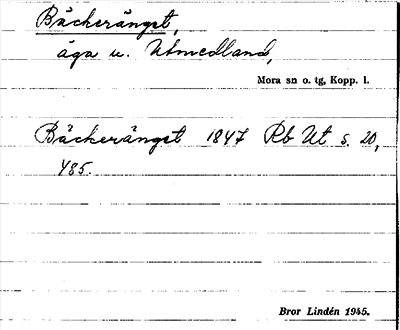 Bäckerängst,
äga u. Utmedland,
Mora sn o. tg, Kopp. l.
Bäckerängst 1847 Rb Ut s. 20,
485.
Bror Lindén 1945.